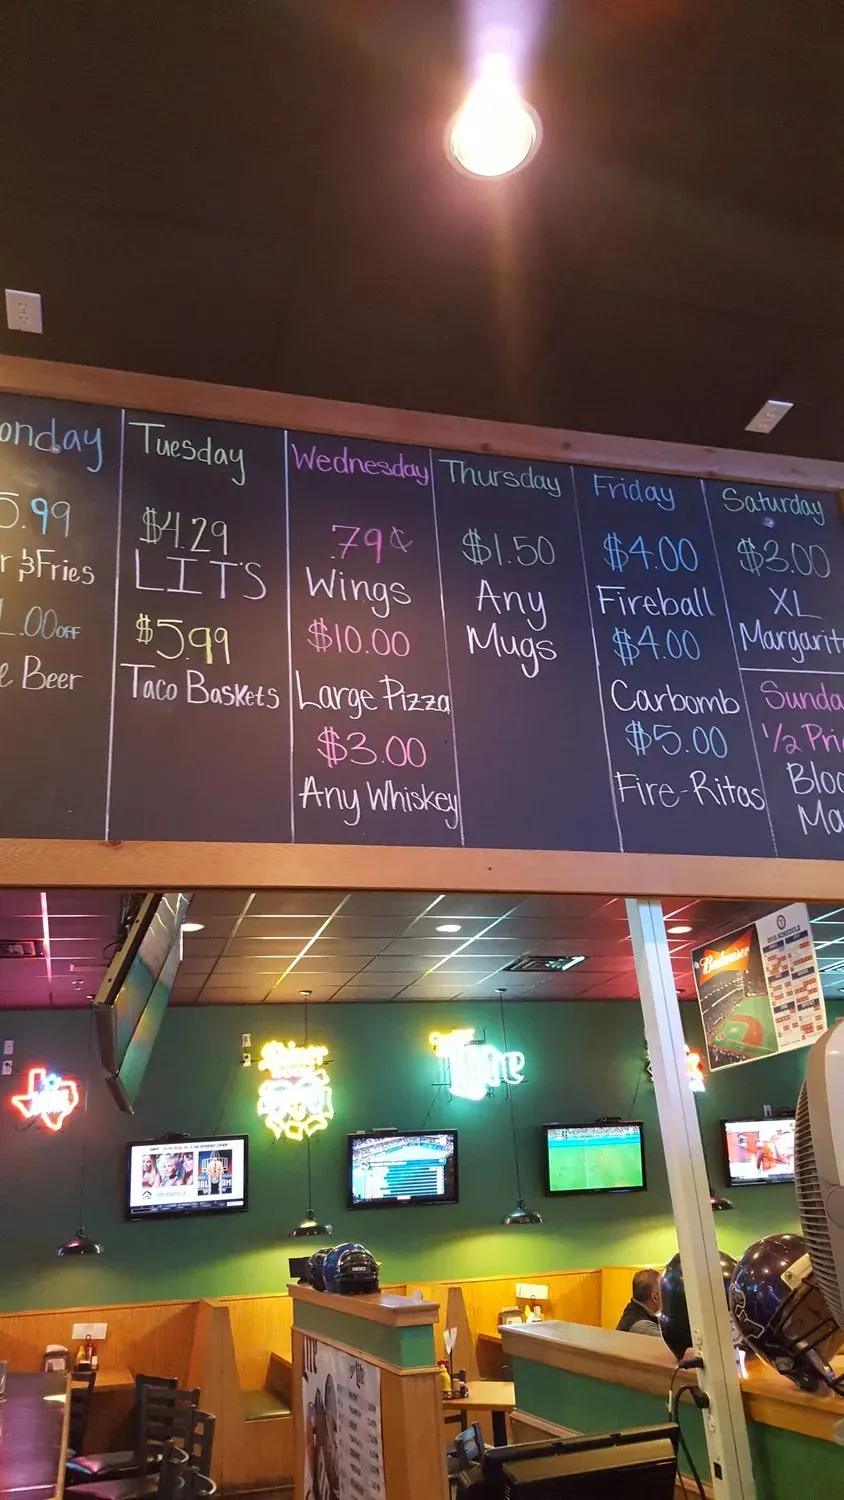 onday
5.99
r & Fries
1.00 OFF
e Beer
Tuesday
$4.29
LIT'S
$5.99
Taco Baskets
Wednesday
.79¢
Wings
$10.00
Large Pizza
$3.00
Any Whiskey
Thursday
$1.50
Any
Mugs
Friday
$4.00
Fireball
$4.00
Carbomb
$5.00
Fire-Ritas
Saturday
$3.00
XL
Margarit
Sunda
1/2 Pri
Bloo
Ma
Budweiser
SCHEDULE
Lite